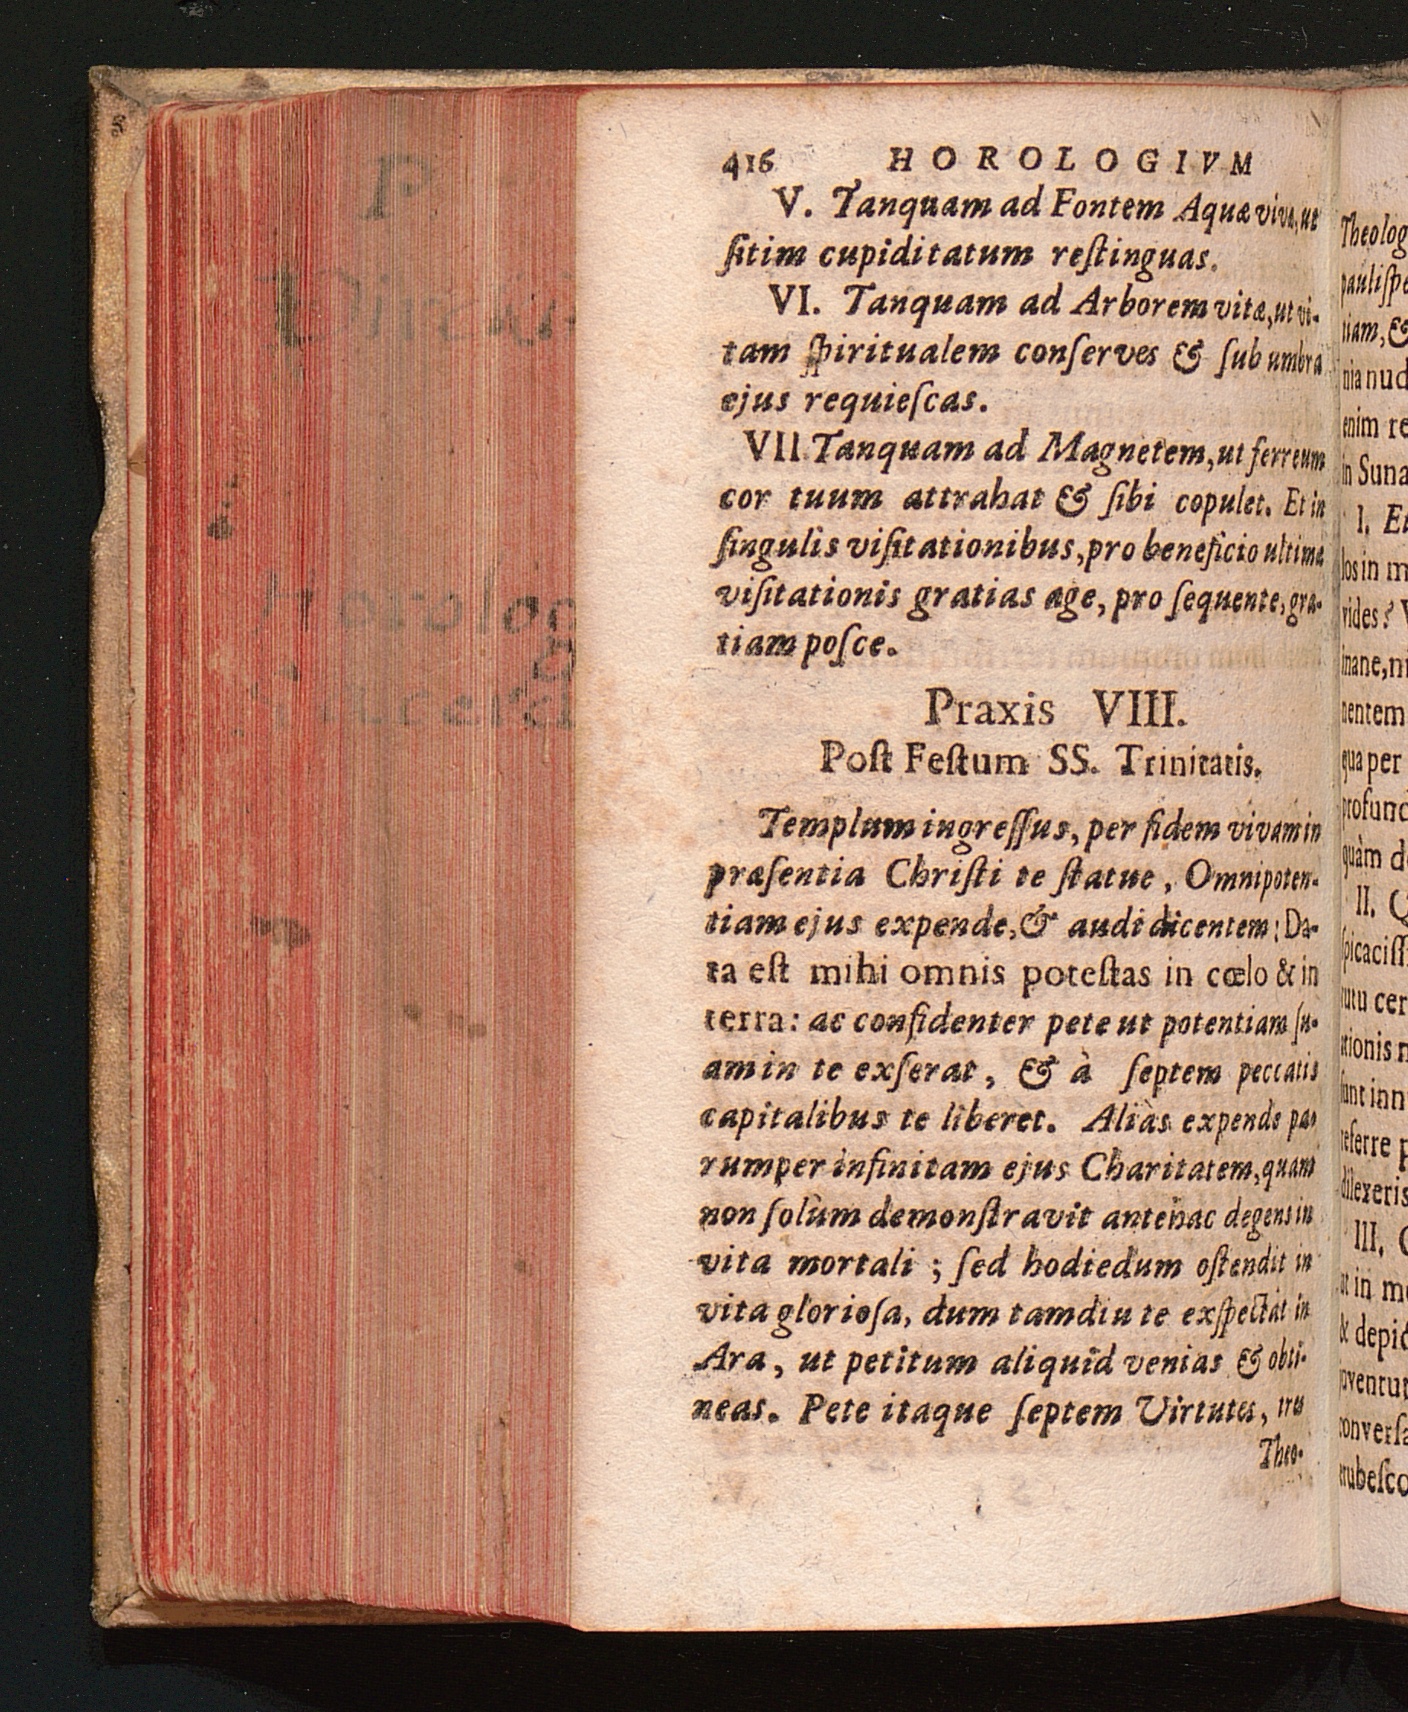 416 HOROLOGIVM
V. Tanquam ad Fontem Aquæ vivæ, ut
ſitim cupiditatum reſtinguas.
VI. Tanquam ad Arborem vitæ, ut vi-
tam ſpiritualem conſerves & ſub umbra
ejus requieſcas.
VII. Tanquam ad Magnetem, ut ferreum
cor tuum attrahat & ſibi copulet. Et in
ſingulis viſitationibus, pro beneficio ultimæ
viſitationis gratias age, pro ſequente, gra-
tiam poſce.
Praxis VIII.
Poſt Feſtum SS. Trinitatis.
Templum ingreſſus, per fidem vivam in
præſentia Chriſti te ſtatue, Omnipoten-
tiam ejus expende, & audi dicentem: Da-
ta eſt mihi omnis poteſtas in cœlo & in
terra: ac confidenter pete ut potentiam ſu-
am in te exſerat, & à ſeptem peccatis
capitalibus te liberet. Aliàs expende pa-
rumper infinitam ejus Charitatem, quam
non ſolùm demonſtravit antehac degens in
vita mortali; ſed hodiedum oſtendit in
vita glorioſa, dum tamdiu te exſpectat in
Ara, ut petitum aliquid venias & obti-
neas. Pete itaque ſeptem Virtutes, tres
Theo-
Theolog
pauliſpe
tiam, &
nia nud
enim re
in Suna
I. Et
los in m
vides? V
inane, ni
nentem
qua per
profund
quàm d
II. Q
ſpicaciſſ
tutu cer
ationis n
ſunt inn
referre p
dilexeris
III. C
at in m
& depic
juventut
converſa
erubeſco